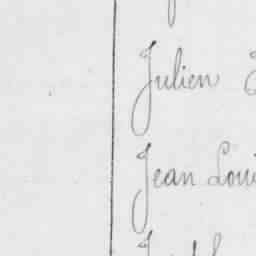 Julien
Jean Loui